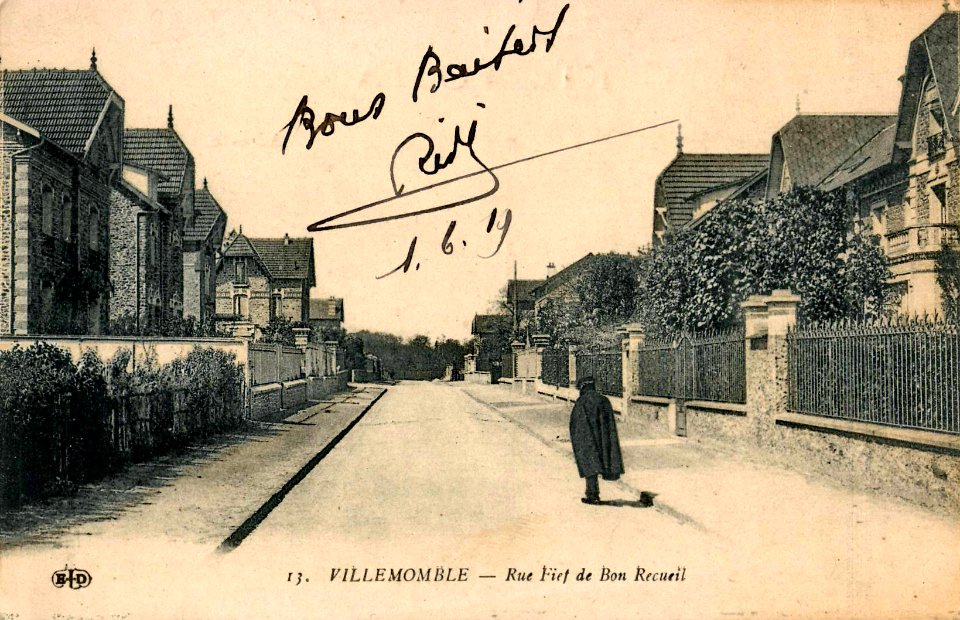 Bons Baisers
1.6.19
ELD
13. VILLEMOMBLE — Rue Fief de Bon Recueil